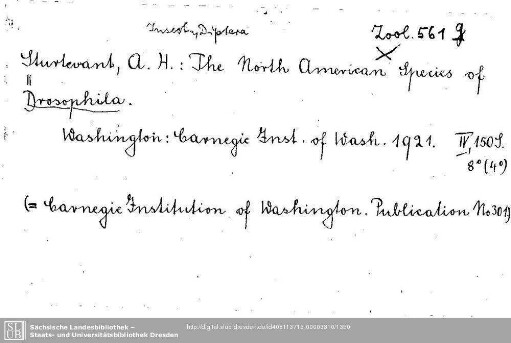 Insecta, Diptera
Zool. 561 g
Sturtevant, A. H.: The North American Species of
Drosophila.
Washington: Carnegie Inst. of Wash. 1921. IV, 150 S.
8° (4°)
(= Carnegie Institution of Washington. Publication No 301)
SLUB
Sächsische Landesbibliothek –
Staats- und Universitätsbibliothek Dresden